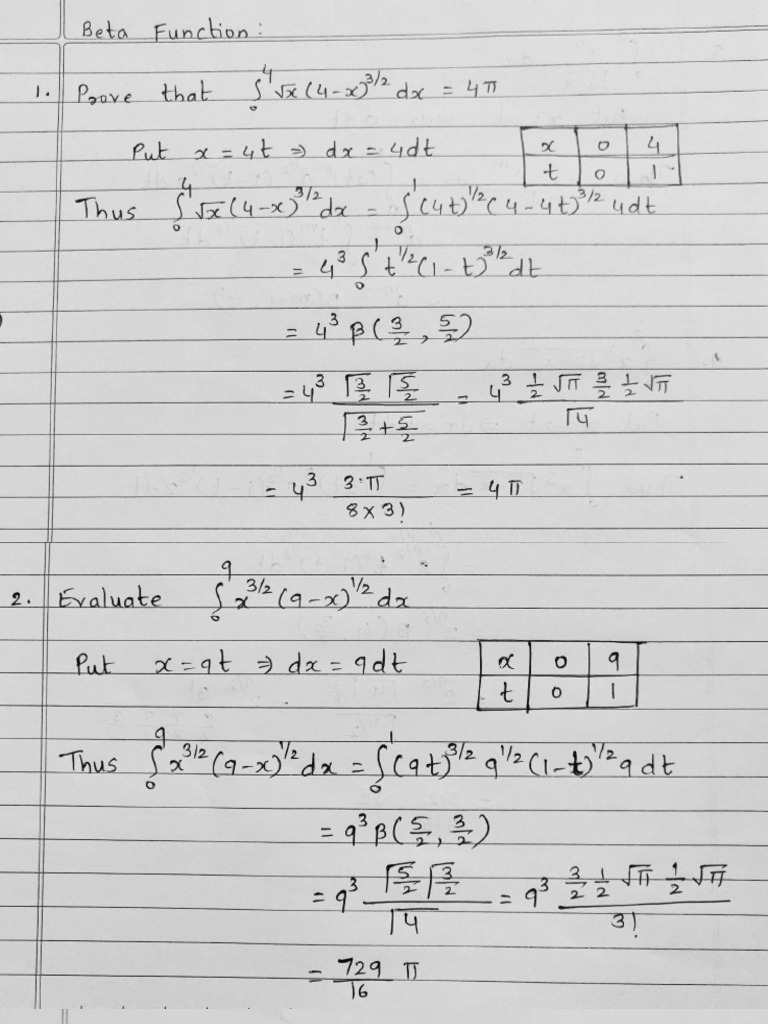 Beta Function:
1. Prove that ∫₀⁴ √x (4-x)^{3/2} dx = 4π
Put x = 4t ⇒ dx = 4dt
x 0 4
t 0 1
Thus ∫₀⁴ √x (4-x)^{3/2} dx = ∫₀¹ (4t)^{1/2} (4-4t)^{3/2} 4dt
= 4³ ∫₀¹ t^{1/2} (1-t)^{3/2} dt
= 4³ β(3/2, 5/2)
= 4³ (Γ3/2 Γ5/2)/(Γ(3/2+5/2)) = 4³ (1/2 √π 3/2 1/2 √π)/(Γ4)
= 4³ (3·π)/(8×3!) = 4π
2. Evaluate ∫₀⁹ x^{3/2} (9-x)^{1/2} dx
Put x = 9t ⇒ dx = 9dt
x 0 9
t 0 1
Thus ∫₀⁹ x^{3/2} (9-x)^{1/2} dx = ∫₀¹ (9t)^{3/2} 9^{1/2} (1-t)^{1/2} 9 dt
= 9³ β(5/2, 3/2)
= 9³ (Γ5/2 Γ3/2)/(Γ4) = 9³ (3/2 1/2 √π 1/2 √π)/(3!)
= 729/16 π